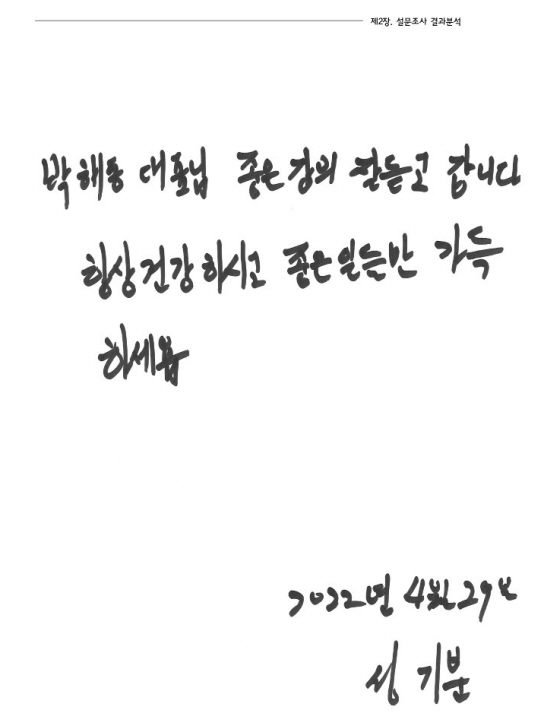 제2장. 설문조사 결과분석
박해동 대표님 좋은강의 잘듣고 갑니다
항상건강하시고 좋은일들만 가득
하세욤
2022년 4월 29일
성 기분